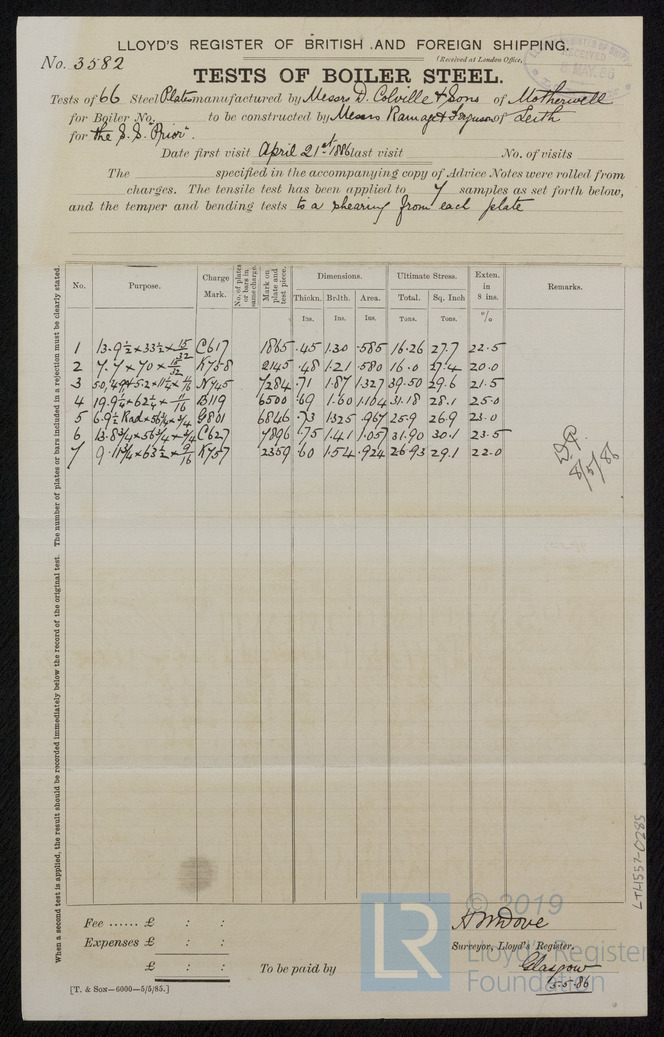 LLOYD'S REGISTER OF BRITISH AND FOREIGN SHIPPING.
No. 3582
(Received at London Office,
RECEIVED
MAY. 86
TESTS OF BOILER STEEL.
Tests of 66 Steel Plates manufactured by Messrs D. Colville & Sons of Motherwell
for Boiler No. to be constructed by Messrs Ramage & Ferguson of Leith
for the S.S. "Prior".
Date first visit April 21st 1886 last visit No. of visits
The specified in the accompanying copy of Advice Notes were rolled from
charges. The tensile test has been applied to 7 samples as set forth below,
and the temper and bending tests to a shearing from each plate
When a second test is applied, the result should be recorded immediately below the record of the original test. The number of plates or bars included in a rejection must be clearly stated.
No. Purpose. Charge Mark. No. of plates or bars in same charge. Mark on plate and test piece. Dimensions. Ultimate Stress. Exten. in 8 ins. Remarks.
Thickn. Brdth. Area. Total. Sq. Inch
Ins. Ins. Ins. Tons. Tons. %
1 13.9½ × 33½ × 15/32 C617 1865 .45 1.30 .585 16.26 27.7 22.5
2 7.7 × 70 × 15/32 K758 2145 .48 1.21 .580 16.0 27.4 20.0
3 N745 7284 .71 1.87 1.327 39.50 29.6 21.5
4 19.9¼ × 62¼ × 11/16 B119 6500 .69 1.60 1.104 31.18 28.1 25.0
5 6.9½ Rad × 56¾ × ¾ G801 6846 .73 1325 .967 25.9 26.9 23.0
6 13.8¾ × 56¾ × ¾ C627 7896 .75 1.41 1.057 31.90 30.1 23.5
7 9.11¾ × 63½ × 9/16 K757 2359 .60 1.54 .924 26.93 29.1 22.0
D.P.
8/5/86
LTH1557-0285
Fee ...... £ : :
Expenses £ : :
£ : :
To be paid by
Surveyor, Lloyd's Register.
Glasgow
5-5-86
[T. & SON—6000—5/5/85.]
LR
© 2019
Lloyd's Register
Foundation